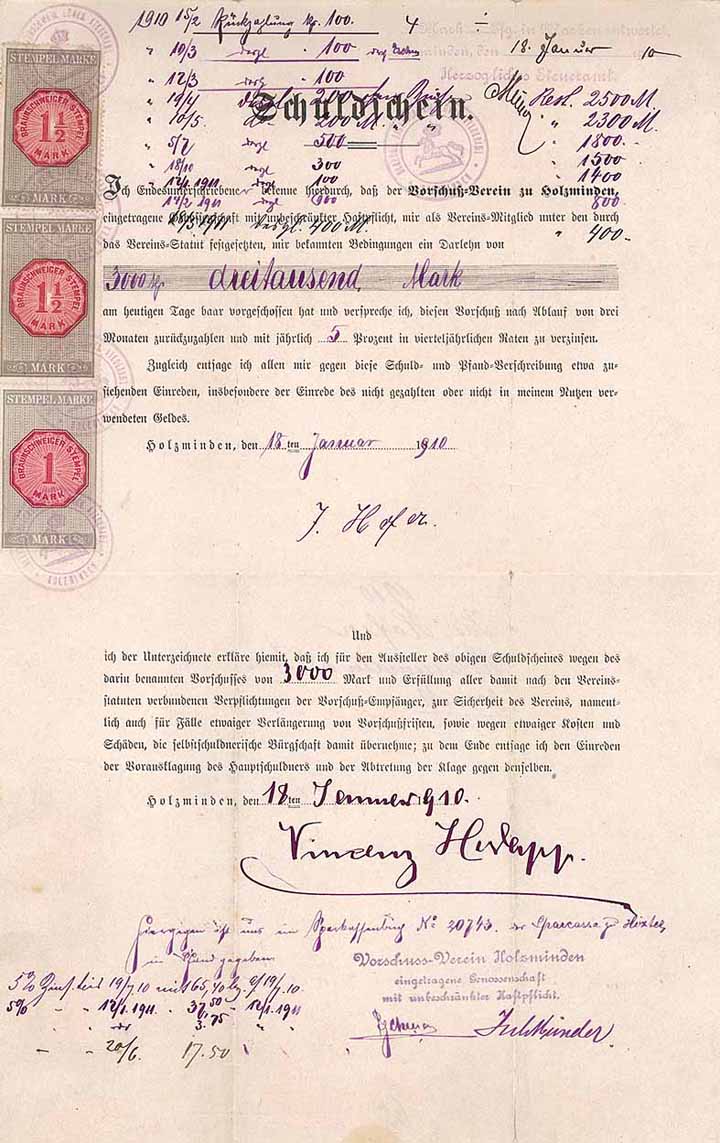 1910 15/2 Rückzahlung 100.
" 10/3 100
" 12/3 " 100
" 19/4
" 10/5 200 M.
" 5/7 500
" 18/10 300
" 12/1 1911 100
400 M.
18. Januar 10
Herzogliches Steueramt.
Rest. 2500 M.
" 2300 M.
" 1800.-
" 1500
" 1400
" 800
" 400.-
STEMPEL MARKE
BRAUNSCHWEIGER STEMPEL
1 1/2
MARK
MARK
STEMPEL MARKE
BRAUNSCHWEIGER STEMPEL
1 1/2
MARK
MARK
STEMPEL MARKE
BRAUNSCHWEIGER STEMPEL
1
MARK
MARK
Schuldschein.
Ich Endesunterschriebener bekenne hierdurch, daß der Vorschuß-Verein zu Holzminden,
eingetragene Genossenschaft mit unbeschränkter Haftpflicht, mir als Vereins-Mitglied unter den durch
das Vereins-Statut festgesetzten, mir bekannten Bedingungen ein Darlehn von
3000 dreitausend Mark
am heutigen Tage baar vorgeschossen hat und verspreche ich, diesen Vorschuß nach Ablauf von drei
Monaten zurückzuzahlen und mit jährlich 5 Prozent in vierteljährlichen Raten zu verzinsen.
Zugleich entsage ich allen mir gegen diese Schuld- und Pfand-Verschreibung etwa zu-
stehenden Einreden, insbesondere der Einrede des nicht gezahlten oder nicht in meinem Nutzen ver-
wendeten Geldes.
Holzminden, den 18ten Januar 1910
J. Hofer.
Und
ich der Unterzeichnete erkläre hiemit, daß ich für den Aussteller des obigen Schuldscheines wegen des
darin benannten Vorschusses von 3000 Mark und Erfüllung aller damit nach den Vereins-
statuten verbundenen Verpflichtungen der Vorschuß-Empfänger, zur Sicherheit des Vereins, nament-
lich auch für Fälle etwaiger Verlängerung von Vorschußfristen, sowie wegen etwaiger Kosten und
Schäden, die selbstschuldnerische Bürgschaft damit übernehme; zu dem Ende entsage ich den Einreden
der Vorausklagung des Hauptschuldners und der Abtretung der Klage gegen denselben.
Holzminden, den 18ten Jenner 1910.
Vincenz
Hiergegen ist uns ein Sparkassenbuch No 20743 der Sparcasse zu Höxter
in Pfand gegeben.
Vorschuss-Verein Holzminden
eingetragene Genossenschaft
mit unbeschränkter Haftpflicht.
5% 19/7.10
5% " 12/1.1911 " 37.50 " 12/1.1911
3.75
20/6 17.50